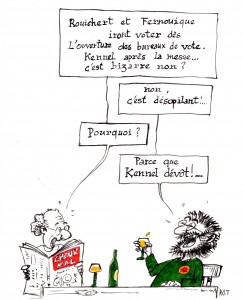 Rouichert et Fernouique
iront voter dès
L'ouverture des bureaux de vote.
Kennel après la messe...
c'est bizarre non ?
non,
c'est désopilant !...
Pourquoi ?
Parce que
Kennel dévôt !....